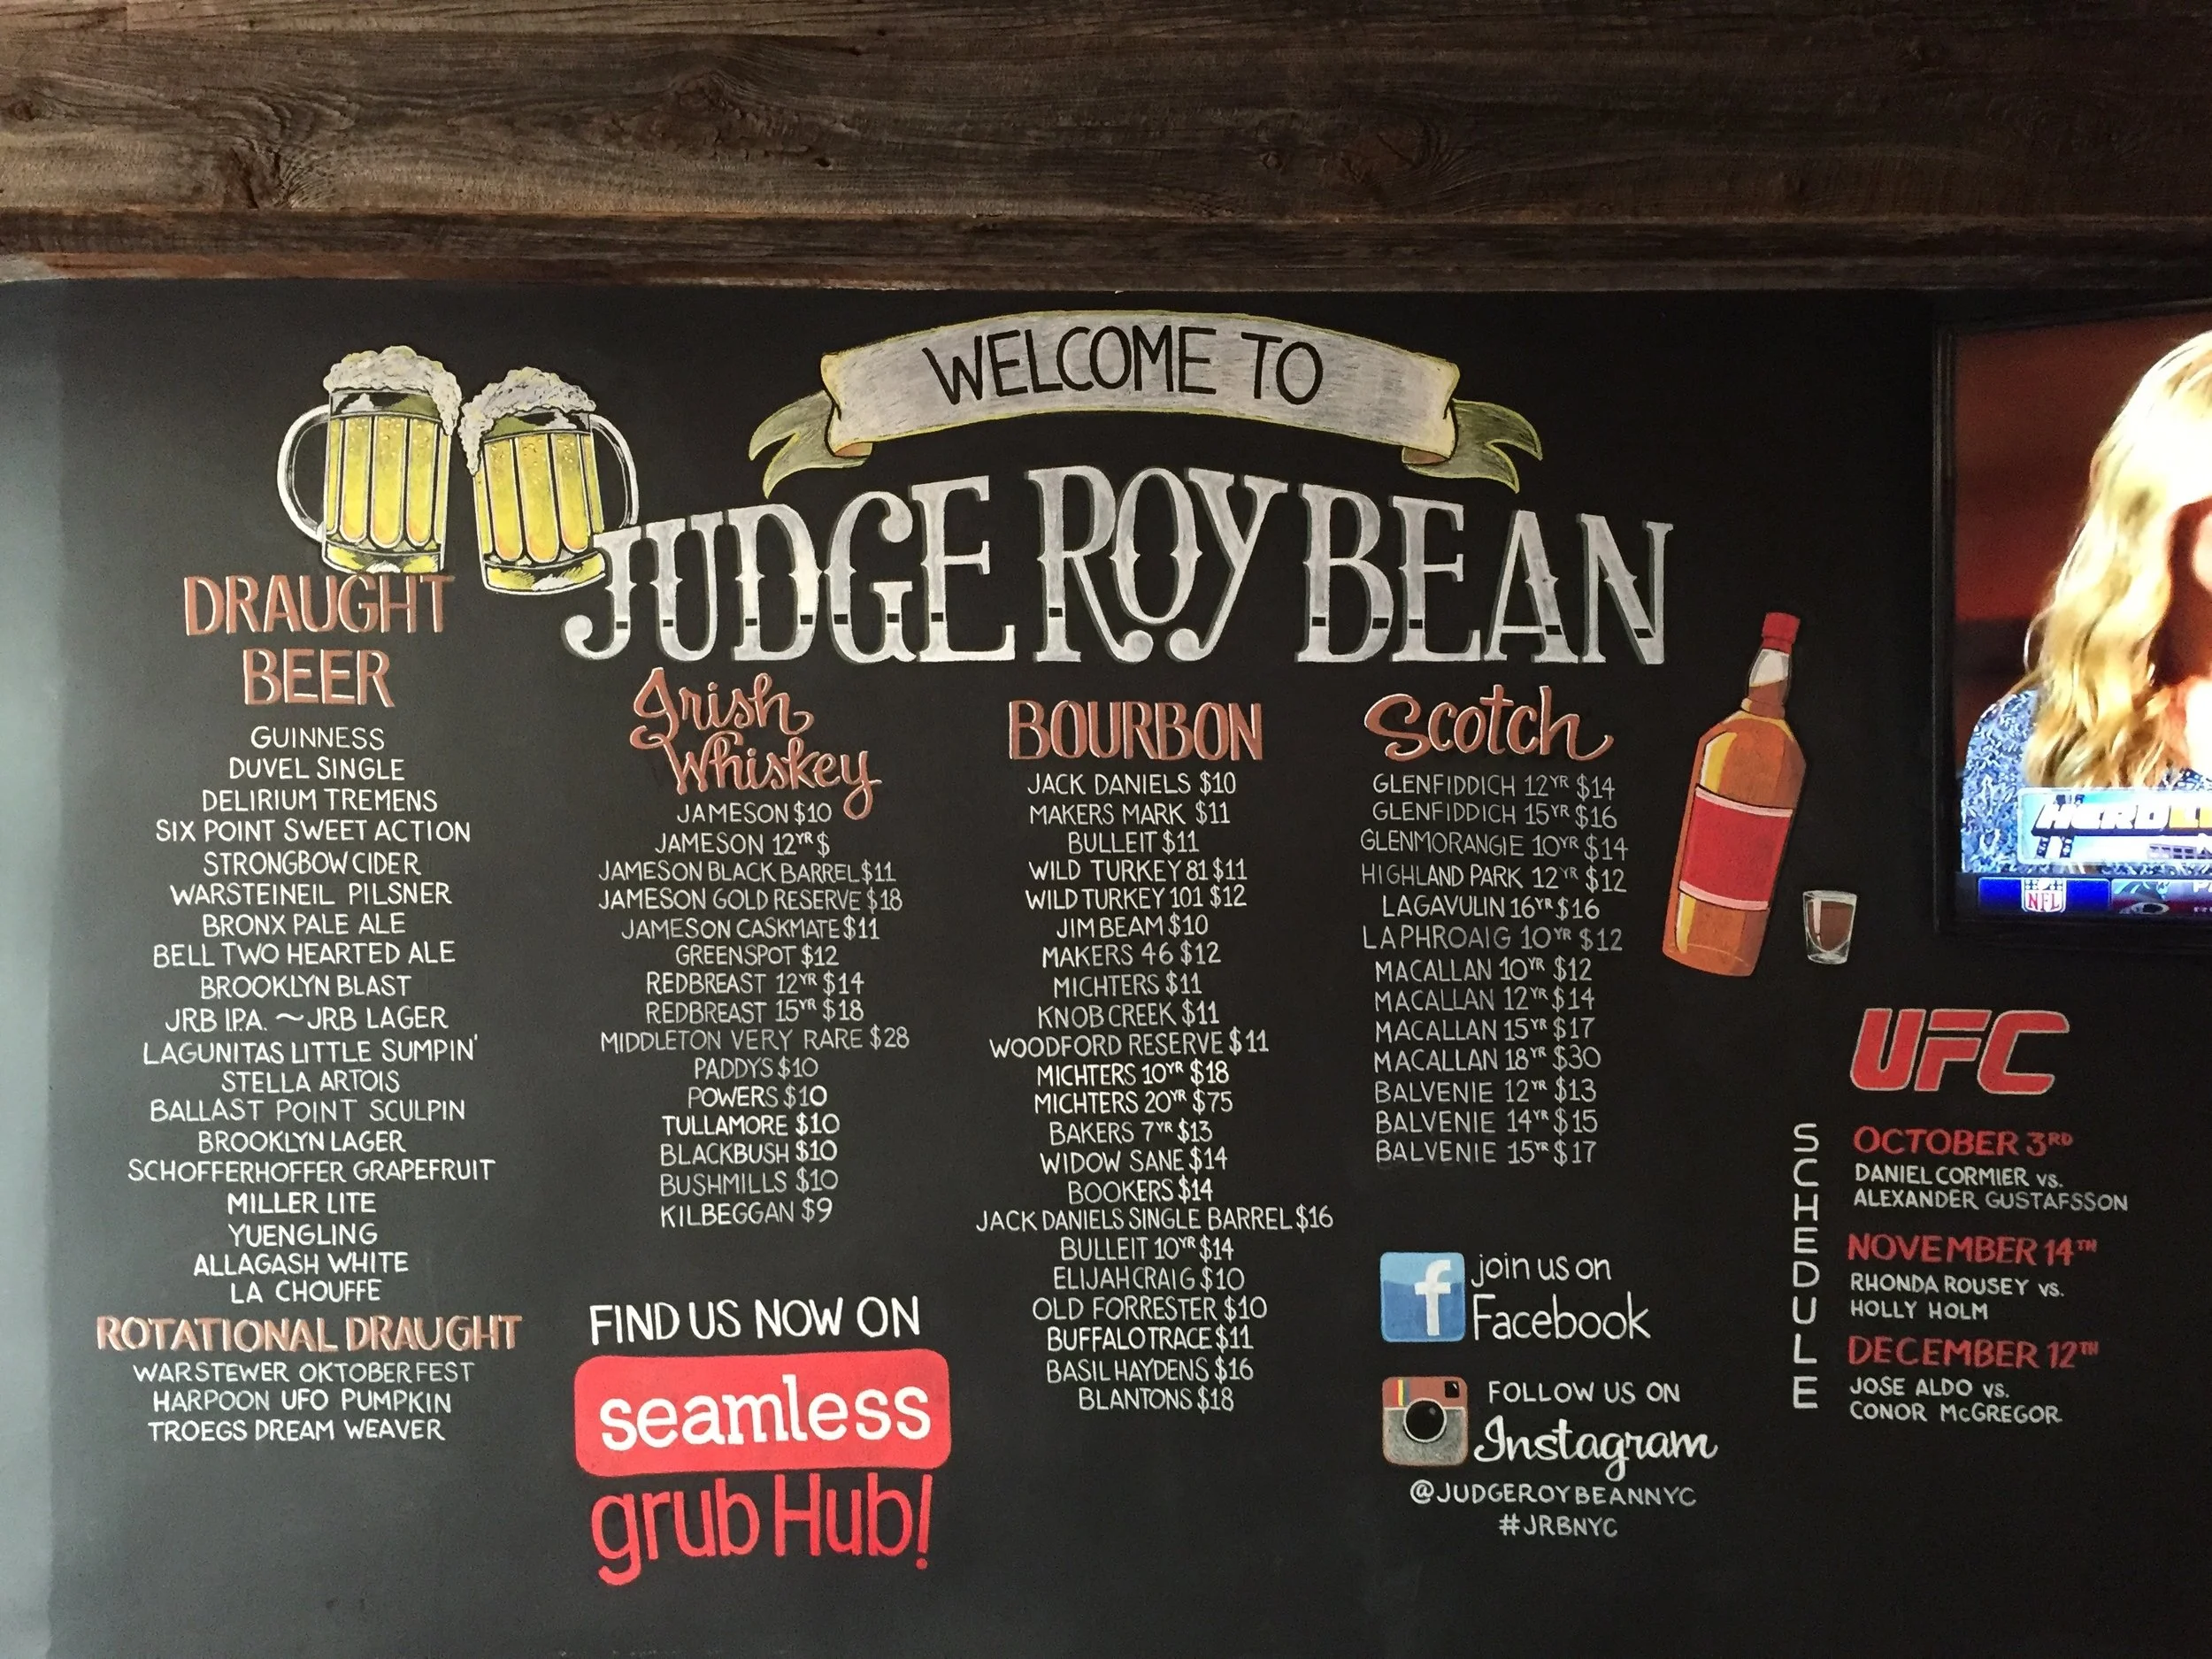 WELCOME TO
JUDGE ROY BEAN
DRAUGHT
BEER
GUINNESS
DUVEL SINGLE
DELIRIUM TREMENS
SIX POINT SWEET ACTION
STRONGBOW CIDER
WARSTEINEIL PILSNER
BRONX PALE ALE
BELL TWO HEARTED ALE
BROOKLYN BLAST
JRB I.P.A. ~ JRB LAGER
LAGUNITAS LITTLE SUMPIN'
STELLA ARTOIS
BALLAST POINT SCULPIN
BROOKLYN LAGER
SCHOFFERHOFFER GRAPEFRUIT
MILLER LITE
YUENGLING
ALLAGASH WHITE
LA CHOUFFE
ROTATIONAL DRAUGHT
WARSTEWER OKTOBERFEST
HARPOON UFO PUMPKIN
TROEGS DREAM WEAVER
Irish
Whiskey
JAMESON $10
JAMESON 12YR $
JAMESON BLACK BARREL $11
JAMESON GOLD RESERVE $18
JAMESON CASKMATE $11
GREENSPOT $12
REDBREAST 12YR $14
REDBREAST 15YR $18
MIDDLETON VERY RARE $28
PADDYS $10
POWERS $10
TULLAMORE $10
BLACKBUSH $10
BUSHMILLS $10
KILBEGGAN $9
FIND US NOW ON
seamless
grubHub!
BOURBON
JACK DANIELS $10
MAKERS MARK $11
BULLEIT $11
WILD TURKEY 81 $11
WILD TURKEY 101 $12
JIM BEAM $10
MAKERS 46 $12
MICHTERS $11
KNOB CREEK $11
WOODFORD RESERVE $11
MICHTERS 10YR $18
MICHTERS 20YR $75
BAKERS 7YR $13
WIDOW SANE $14
BOOKERS $14
JACK DANIELS SINGLE BARREL $16
BULLEIT 10YR $14
ELIJAH CRAIG $10
OLD FORRESTER $10
BUFFALO TRACE $11
BASIL HAYDENS $16
BLANTONS $18
Scotch
GLENFIDDICH 12YR $14
GLENFIDDICH 15YR $16
GLENMORANGIE 10YR $14
HIGHLAND PARK 12YR $12
LAGAVULIN 16YR $16
LAPHROAIG 10YR $12
MACALLAN 10YR $12
MACALLAN 12YR $14
MACALLAN 15YR $17
MACALLAN 18YR $30
BALVENIE 12YR $13
BALVENIE 14YR $15
BALVENIE 15YR $17
f
join us on
Facebook
FOLLOW US ON
Instagram
@JUDGEROYBEANNYC
#JRBNYC
NFL
UFC
SCHEDULE
OCTOBER 3RD
DANIEL CORMIER vs.
ALEXANDER GUSTAFSSON
NOVEMBER 14TH
RHONDA ROUSEY vs.
HOLLY HOLM
DECEMBER 12TH
JOSE ALDO vs.
CONOR McGREGOR